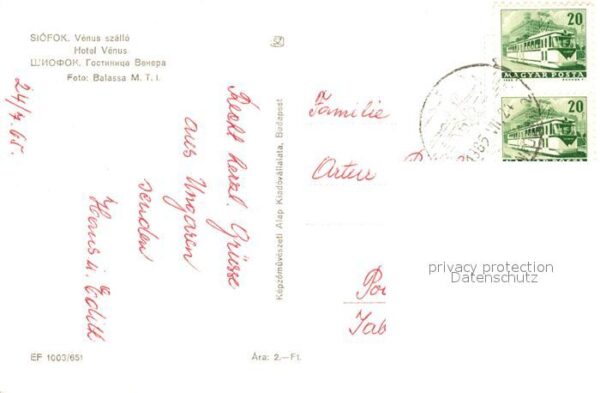 SIÓFOK. Vénus szálló
Hotel Vénus
ШИОФОК. Гостиница Венера
Foto: Balassa M. T. I.
24/7.65.
Recht herzl. Grüsse
aus Ungarn
senden
Hans u. Edith
EF 1003/651
Ára: 2.–Ft.
Képzőművészeti Alap Kiadóvállalata, Budapest
20
MAGYAR POSTA
20
Familie
Artur
privacy protection
Datenschutz